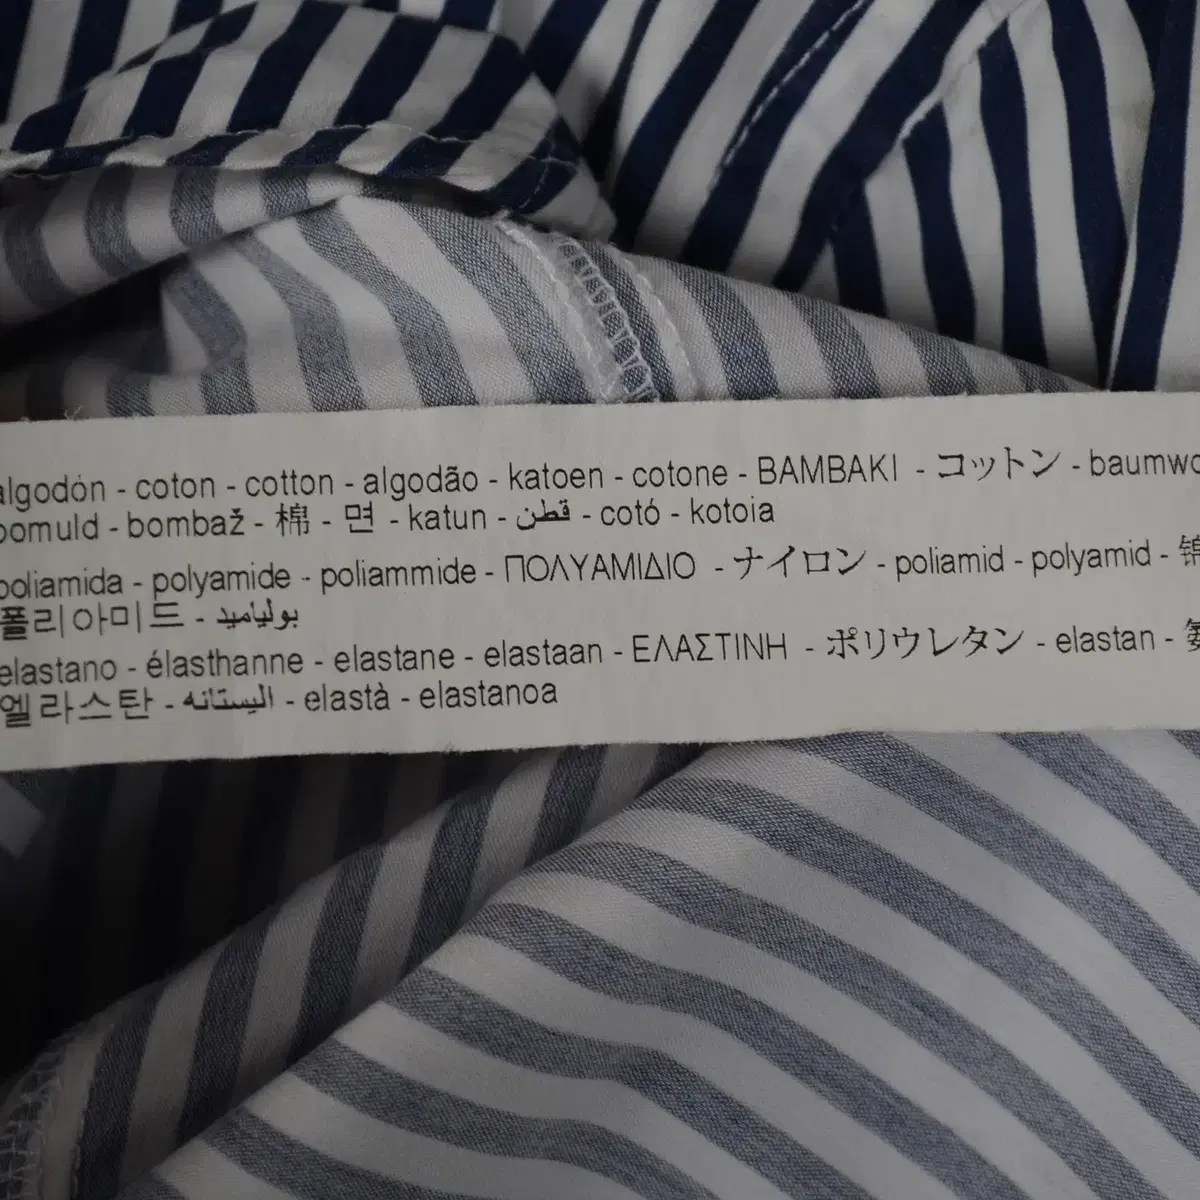 algodón - coton - cotton - algodão - katoen - cotone - BAMBAKI - コットン - baumwo
bomuld - bombaž - 棉 - 면 - katun - قطن - cotó - kotoia
poliamida - polyamide - poliammide - ΠΟΛΥΑΜΙΔΙΟ - ナイロン - poliamid - polyamid - 锦
폴리아미드 - بولياميد
elastano - élasthanne - elastane - elastaan - ΕΛΑΣΤΙΝΗ - ポリウレタン - elastan - 氨
엘라스탄 - اليستانه - elastà - elastanoa